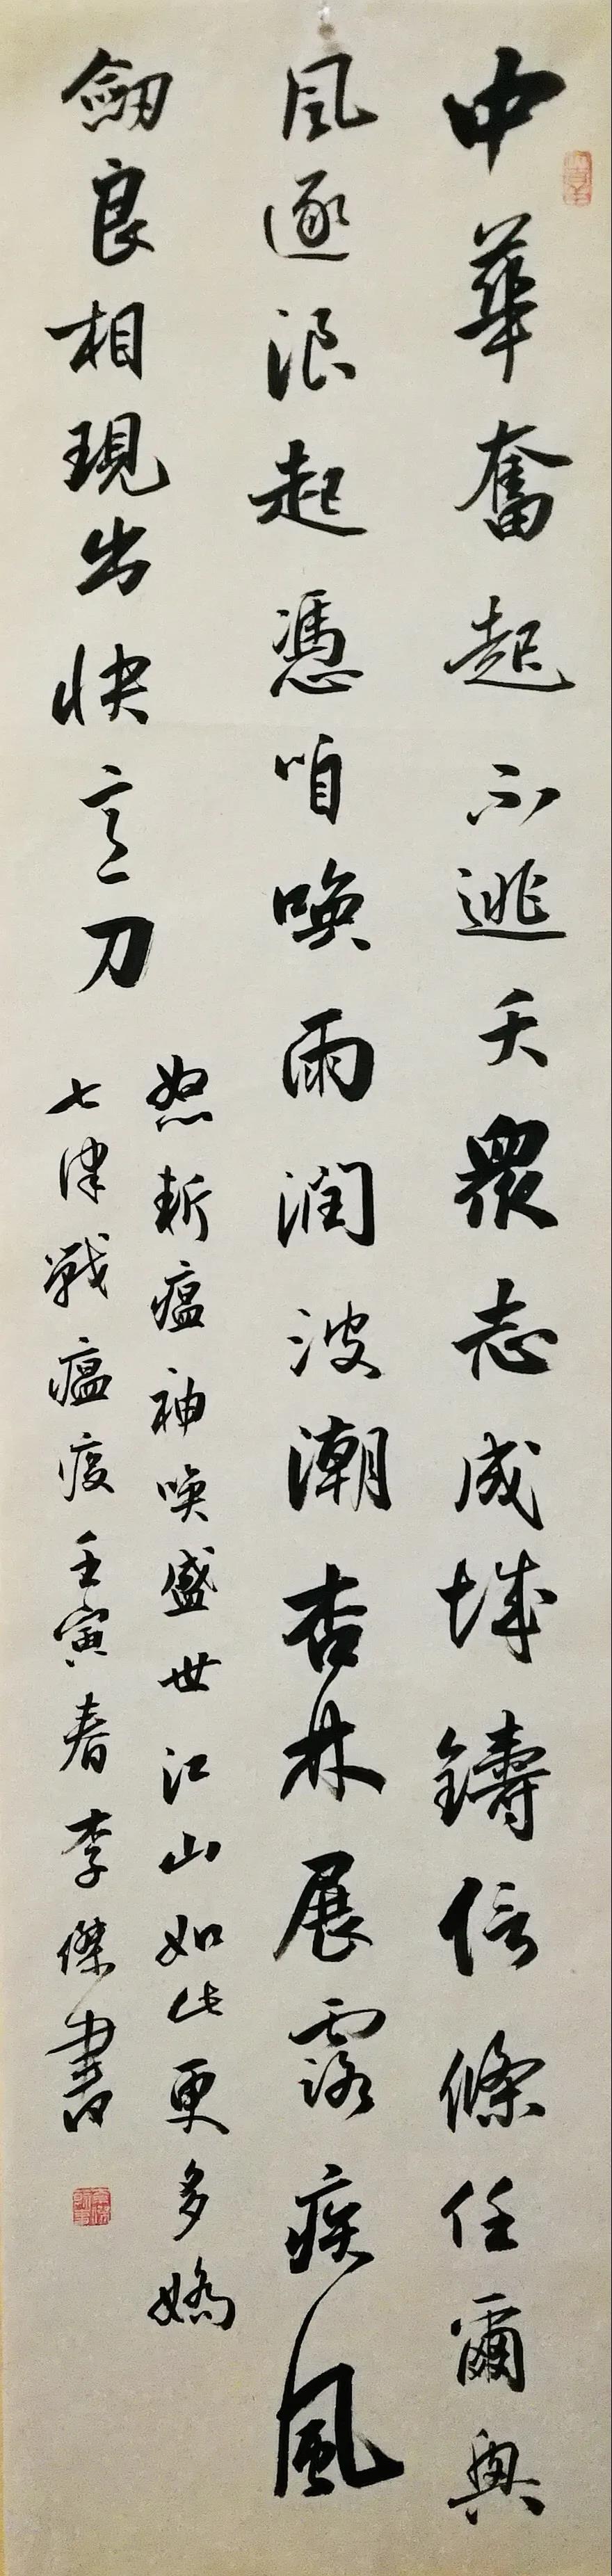 中華奮起不逃夭衆志成城鑄信條任爾興
風逐浪起憑咱喚雨潤波潮杏林展露疾風
劒良相現出快意刀
怒斬瘟神喚盛世江山如此更多嬌
七律戰瘟疫壬寅春李傑書